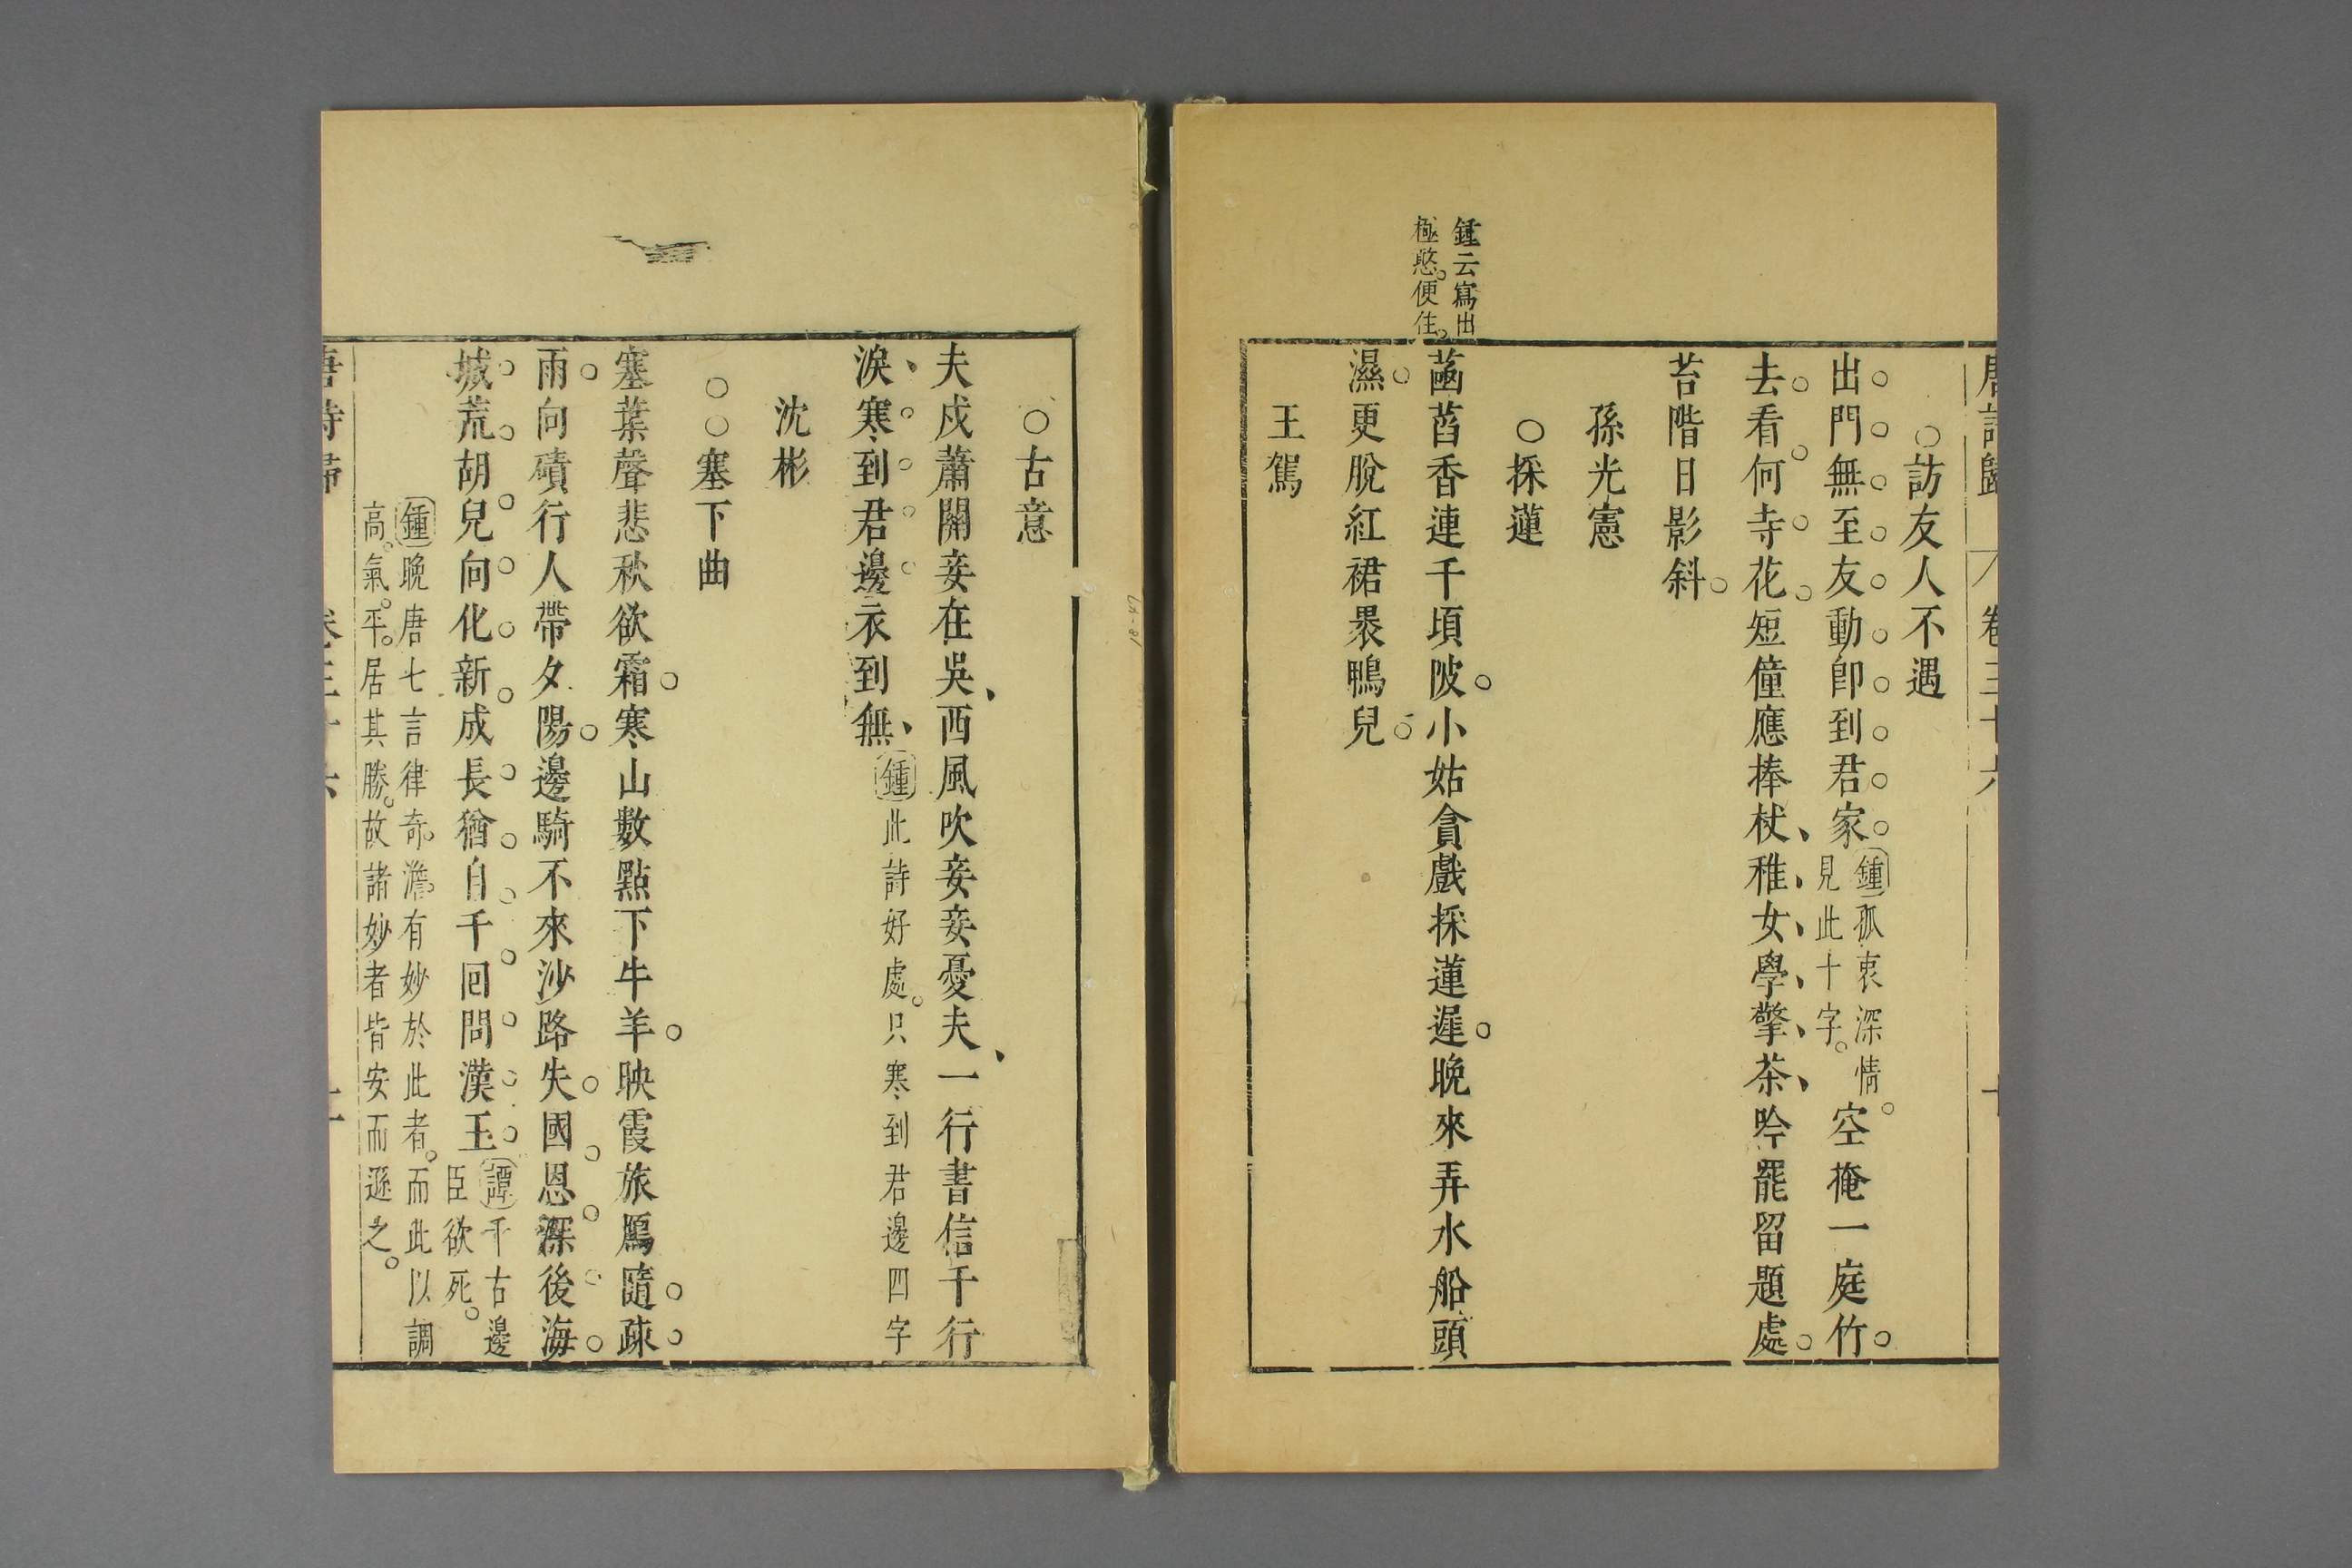 唐詩歸 卷三十六 十
○訪友人不遇
出門無至友動卽到君家鍾孤衷深情
見此十字空掩一庭竹
去看何寺花短僮應捧杖稚女學擎茶吟罷留題處
苔階日影斜
孫光憲
○採蓮
鍾云寫出
極憨便住
菡萏香連千頃陂小姑貪戲採蓮遲晚來弄水船頭
濕更脫紅裙褁鴨兒
王駕
○古意
夫戍蕭關妾在吳西風吹妾妾憂夫一行書信千行
淚寒到君邊衣到無鍾此詩好處只寒到君邊四字
沈彬
○○塞下曲
塞葉聲悲秋欲霜寒山數點下牛羊映霞旅鴈隨疎
雨向磧行人帶夕陽邊騎不來沙路失國恩深後海
城荒胡兒向化新成長猶自千回問漢王譚千古邊
臣欲死
鍾晚唐七言律奇澹有妙於此者而此以調
高氣平居其勝故諸妙者皆安而遜之
唐詩歸 卷三十六